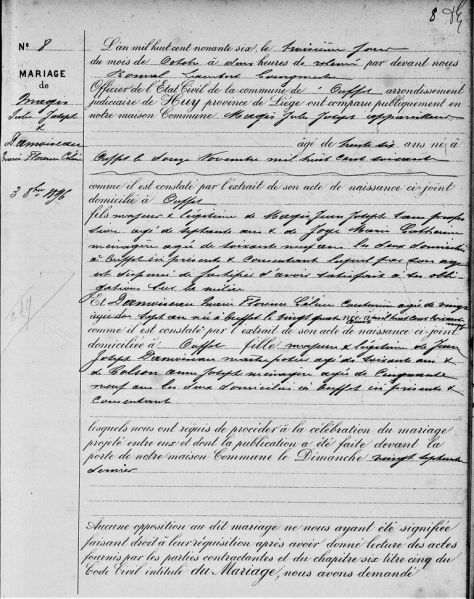 8
N° 8
MARIAGE
de
Magis
Jules Joseph
&
Damoiseau
Marie Florence Céline
3 8bre 1896
L'an mil huit cent nonante six, le troisième jour
du mois de Octobre à deux heures de relevée par devant nous
Lambert
Officier de l'État Civil de la commune de Ouffet arrondissement
judiciaire de Huy province de Liége ont comparu publiquement en
notre maison Commune Magis Jules Joseph
âgé de trente six ans né à
Ouffet le douze Novembre mil huit cent soixante
comme il est constaté par l'extrait de son acte de naissance ci-joint
domicilié à Ouffet
fils majeur & légitime de Magis Jean Joseph sans profes
sion agé de septante ans & de Joye Marie Catherine
ménagère agée de soixante neuf ans les deux domiciliés
à Ouffet ici présents & consentant lequel par son age
est dispensé de justifier d'avoir satisfait à ses obli
gations sur la milice
Et Damoiseau Marie Florence Céline Couturière agée de vingt
sept ans née à Ouffet le vingt quatre mil huit cent soixante
comme il est constaté par l'extrait de son acte de naissance ci-joint
domiciliée à Ouffet fille majeure & légitime de Jean
Joseph Damoiseau agé de soixante ans &
de Colson Anne Joseph ménagère agée de Cinquante
neuf ans les deux domiciliés à Ouffet ici présents &
consentant
lesquels nous ont requis de procéder à la célébration du mariage
projeté entre eux et dont la publication a été faite devant la
porte de notre maison Commune le Dimanche vingt septembre
dernier
Aucune opposition au dit mariage ne nous ayant été signifiée
faisant droit à leur réquisition après avoir donné lecture des actes
fournis par les parties contractantes et du chapitre six titre cinq du
Code Civil intitulé du Mariage, nous avons demandé